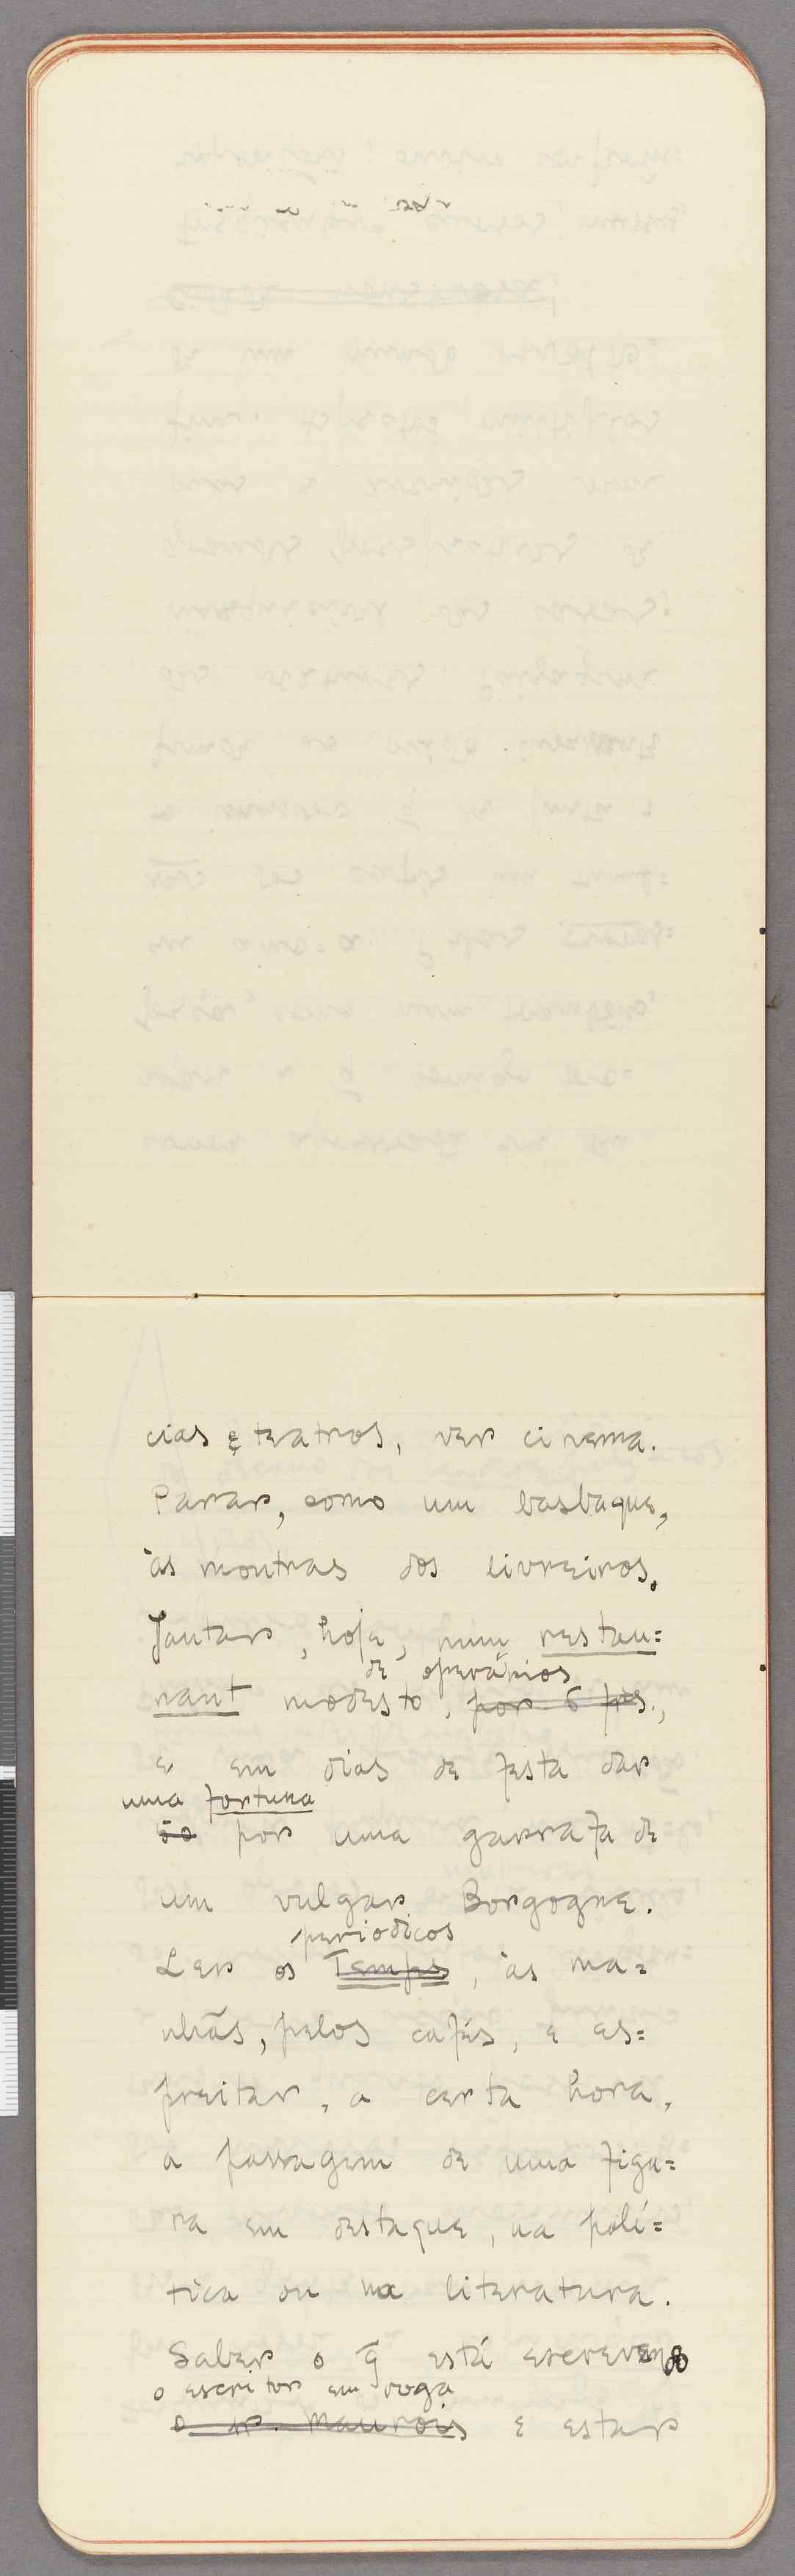 cias e teatros, ver cinema.
Parar, como um basbaque,
às montras dos livreiros.
Jantar, hoje, num restau=
de operários
rant modesto, por 6 frs.,
e em dias de festa dar
uma fortuna
50 por uma garrafa de
um vulgar Borgogne.
periodicos
Ler os Temps, às ma=
nhãs, pelos cafés, e es=
preitar, a certa hora,
a passagem de uma figu=
ra em destaque, na polí=
tica ou na literatura.
Saber o q̄ está escrevendo
o escritor em voga
o sr. Maurois e estar